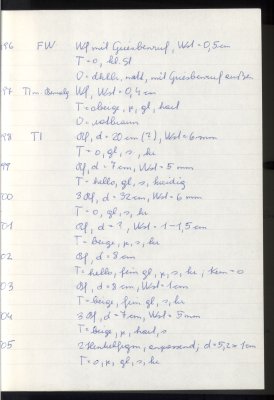 96 FW Wf mit Griesbewurf, Wst = 0,5 cm
T = 0, kl. St
O = dkllb, matt, mit Griesbewurf außen
97 TI m. Bemalg Wf, Wst = 0,4 cm
T = obeige, p, gl, hart
O = rotbraun
98 TI Rf, d = 20 cm (?), Wst = 6 mm
T = 0, gl, s, hr
99 Rf, d = 7 cm, Wst = 5 mm
T = hello, gl, s, kreidig
00 3 Rf, d = 32 cm, Wst = 6 mm
T = 0, gl, s, hr
01 Rf, d = ?, Wst = 1-1,5 cm
T = beige, p, s, hr
02 Rf, d = 8 cm
T = hello, fein gl, p, s, hr; = 0
03 Rf, d = 8 cm, Wst = 1 cm
T = beige, fein gl, s, hr
04 3 Rf, d = 7 cm, Wst = 5 mm
T = beige, p, hart, s
05 2 Henkelfrgm, anpassend; d = 5,2 x 1 cm
T = 0, p, gl, s, hr